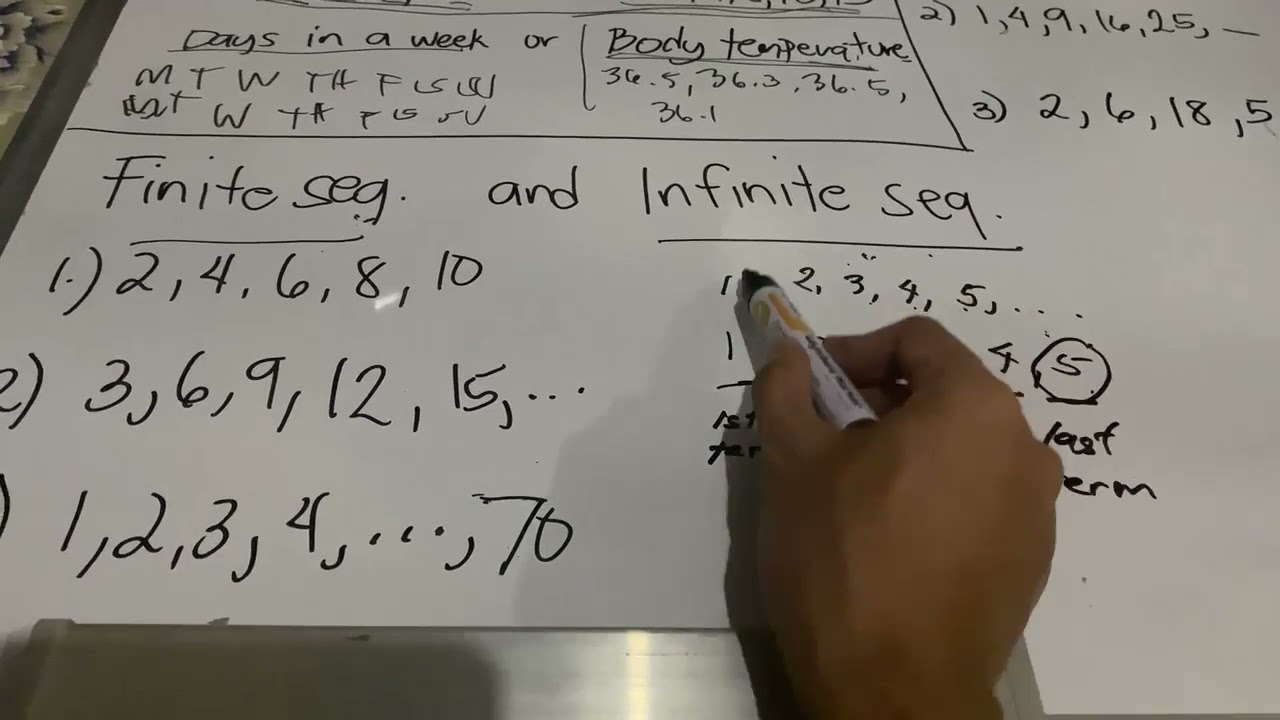 Days in a week or
M T W TH F S SU
W TH F S SU
Body temperature
36.5, 36.3, 36.5,
36.1
2) 1, 4, 9, 16, 25, —
3) 2, 6, 18, 5
Finite seq. and Infinite seq.
1.) 2, 4, 6, 8, 10
2) 3, 6, 9, 12, 15, ...
) 1, 2, 3, 4, ..., 70
1 2, 3, 4, 5, ...
1 4 5
1st last
ter erm